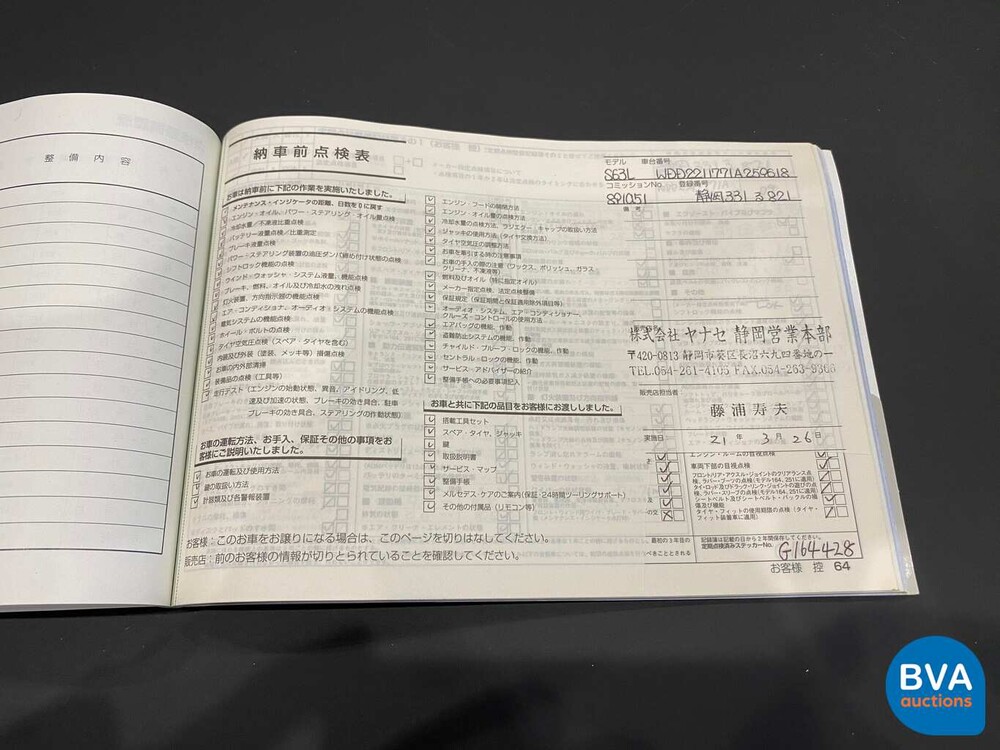 整備内容
納車前点検表
お車は納車前に下記の作業を実施いたしました。
メンテナンス・インジケータの距離、日数を0に戻す
エンジン・オイル、パワー・ステアリング・オイル量点検
冷却水量/不凍液比重点検
バッテリー液量点検/比重測定
ブレーキ液量点検
パワー・ステアリング装置の油圧ダンパ締め付け状態の点検
シフトロック機能の点検
ウインド・ウォッシャ・システム液量、機能点検
ブレーキ、燃料、オイル及び冷却水の洩れ点検
灯火装置、方向指示器の機能点検
エア・コンディショナ、オーディオ・システムの機能点検
電気システムの機能点検
ホイール・ボルトの点検
タイヤ空気圧点検(スペア・タイヤを含む)
内装及び外装(塗装、メッキ等)損傷点検
お車の内外部清掃
装備品の点検(工具等)
走行テスト(エンジンの始動状態、異音、アイドリング、低
速及び加速の状態、ブレーキの効き具合、駐車
ブレーキの効き具合、ステアリングの作動状態)
お車の運転方法、お手入、保証その他の事項をお
客様にご説明いたしました。
お車の運転及び使用方法
鍵の取扱い方法
計器類及び各警報装置
エンジン・フードの開閉方法
エンジン・オイル量の点検方法
冷却水量の点検方法、ラジエター・キャップの取扱い方法
ジャッキの使用方法(タイヤ交換方法)
タイヤ空気圧の調整方法
お車を牽引する時の注意事項
お車の手入の際の注意(ワックス、ポリッシュ、ガラス
クリーナ、不凍液等)
燃料及びオイル(特に指定オイル)
メーカー指定点検、法定点検整備
保証規定(保証期間と保証適用除外項目等)
オーディオ・システム、エア・コンディショナー、
クルーズ・コントロールの使用方法
エアバッグの機能、作動
盗難防止システムの機能、作動
チャイルド・プルーフ・ロックの機能、作動
セントラル・ロックの機能、作動
サービス・アドバイザーの紹介
整備手帳への必要事項記入
お車と共に下記の品目をお客様にお渡ししました。
搭載工具セット
スペア・タイヤ、ジャッキ
鍵
取扱説明書
サービス・マップ
整備手帳
メルセデス・ケアのご案内(保証・24時間ツーリングサポート)
その他の付属品(リモコン等)
モデル 車台番号
S63L WDD2211771A259618
コミッションNo. 登録番号
891051 静岡331る821
備考
株式会社 ヤナセ 静岡営業本部
〒420-0813 静岡市葵区長沼六九四番地の一
TEL.054-261-4105 FAX.054-263-9306
販売店担当者
藤浦寿夫
実施日 21年 3月 26日
エンジン・ルームの目視点検
車両下部の目視点検
フロントリア・アクスル・ジョイントのクリアランス点
検、ラバー・ブーツの点検(モデル164、251に適用)
タイ・ロッド及びドラック・リンク・ジョイントの遊びの点
検、ラバー・スリーブの点検(モデル164、251に適用)
シートベルト及びシートベルト・バックルの損
傷及び機能
タイヤ・フィットの使用期限の点検(タイヤ・
フィット装着車に適用)
最初の3年目の
べることとされる
記録簿は記載の日から2年間保存してください。
定期点検済みステッカーNo. G164428
お客様:このお車をお譲りになる場合は、このページを切りはなしてください。
販売店:前のお客様の情報が切りとられていることを確認してください。
お客様 控 64
BVA
auctions